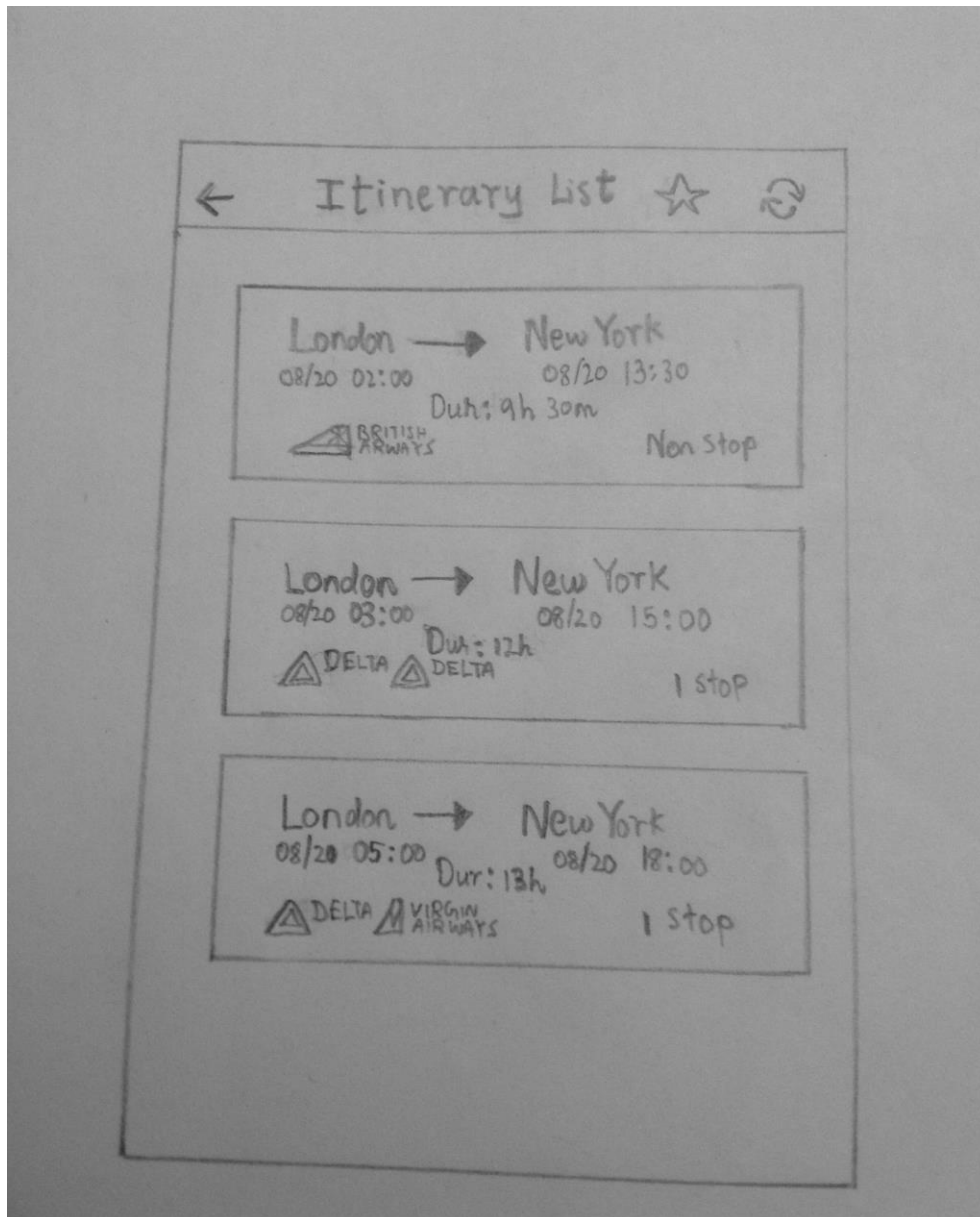 Itinerary List
London New York
08/20 02:00 08/20 13:30
Dur: 9h 30m
BRITISH
AIRWAYS Non stop
London New York
08/20 03:00 08/20 15:00
Dur: 12h
DELTA DELTA
1 stop
London New York
08/20 05:00 08/20 18:00
Dur: 13h
DELTA VIRGIN
AIRWAYS 1 stop